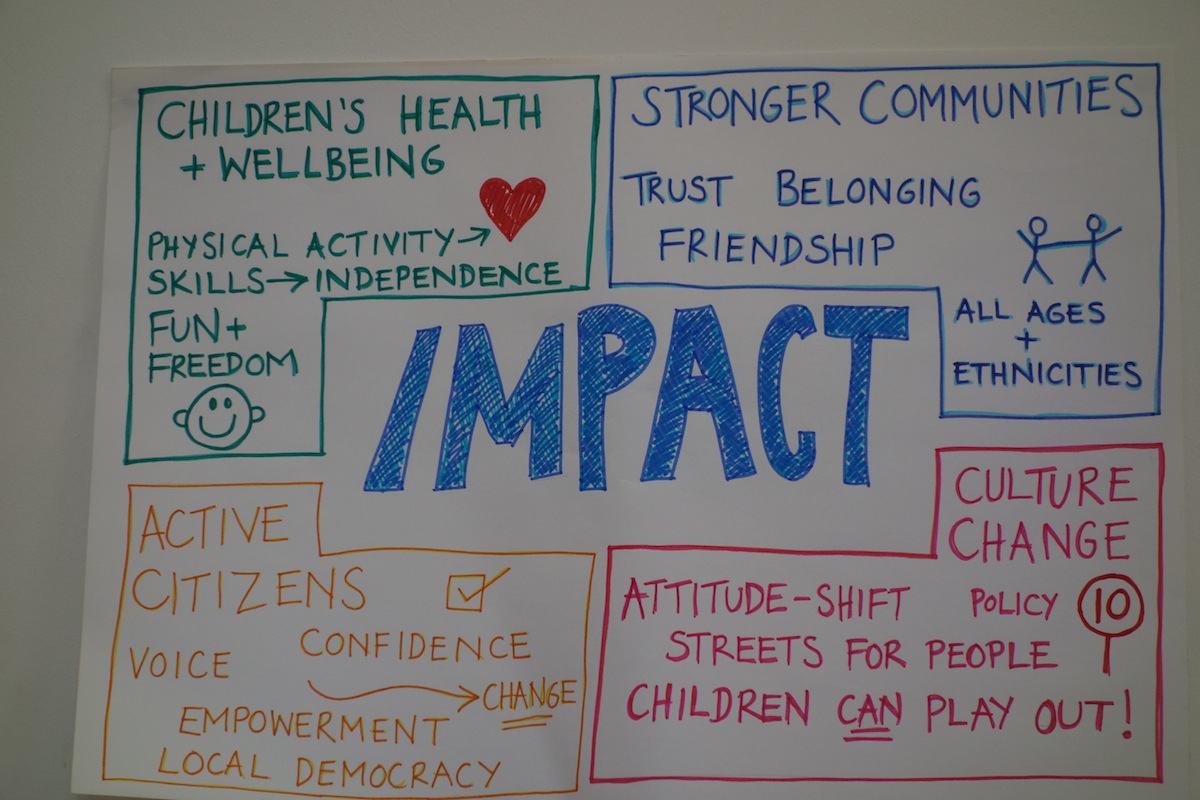 CHILDREN'S HEALTH
+ WELLBEING
PHYSICAL ACTIVITY →
SKILLS → INDEPENDENCE
FUN +
FREEDOM
STRONGER COMMUNITIES
TRUST BELONGING
FRIENDSHIP
ALL AGES
+
ETHNICITIES
IMPACT
ACTIVE
CITIZENS
VOICE CONFIDENCE
→ CHANGE
EMPOWERMENT
LOCAL DEMOCRACY
CULTURE
CHANGE
ATTITUDE-SHIFT POLICY 10
STREETS FOR PEOPLE
CHILDREN CAN PLAY OUT!